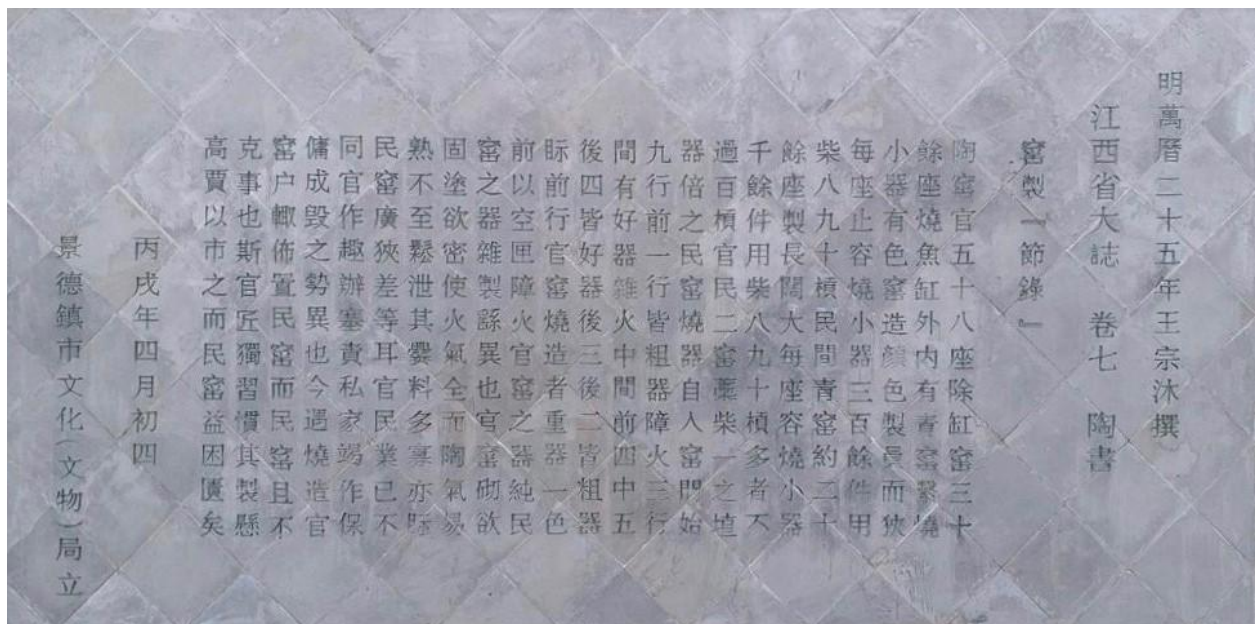 明萬曆二十五年王宗沐撰
江西省大誌　卷七　陶書
窰製『節錄』
陶窰官五十八座除缸窰三十
餘座燒魚缸外內有青窰繫燒
小器有色窰造顏色製員而狹
每座止容燒小器三百餘件用
柴八九十槓民間青窰約二十
餘座製長闊大每座容燒小器
千餘件用柴八九十槓多者不
過百槓官民二窰藁柴一之埴
器倍之民窰燒器自入窰門始
九行前一行皆粗器障火三行
間有好器雜火中間前四中五
後四皆好器後三後二皆粗器
眎前行官窰燒造者重器一色
前以空匣障火官窰之器純民
窰之器雜製繇異也官窰砌欲
固塗欲密使火氣全而陶氣易
熟不至鬆泄其爨料多寡亦眎
民窰廣狹差等耳官民業已不
同官作趣辦塞責私家竭作保
傭成毀之勢異也今遇燒造官
窰户輙佈置民窰而民窰且不
克事也斯官匠獨習慣其製懸
高賈以市之而民窰益困匱矣
丙戌年四月初四
景德鎮市文化(文物)局立